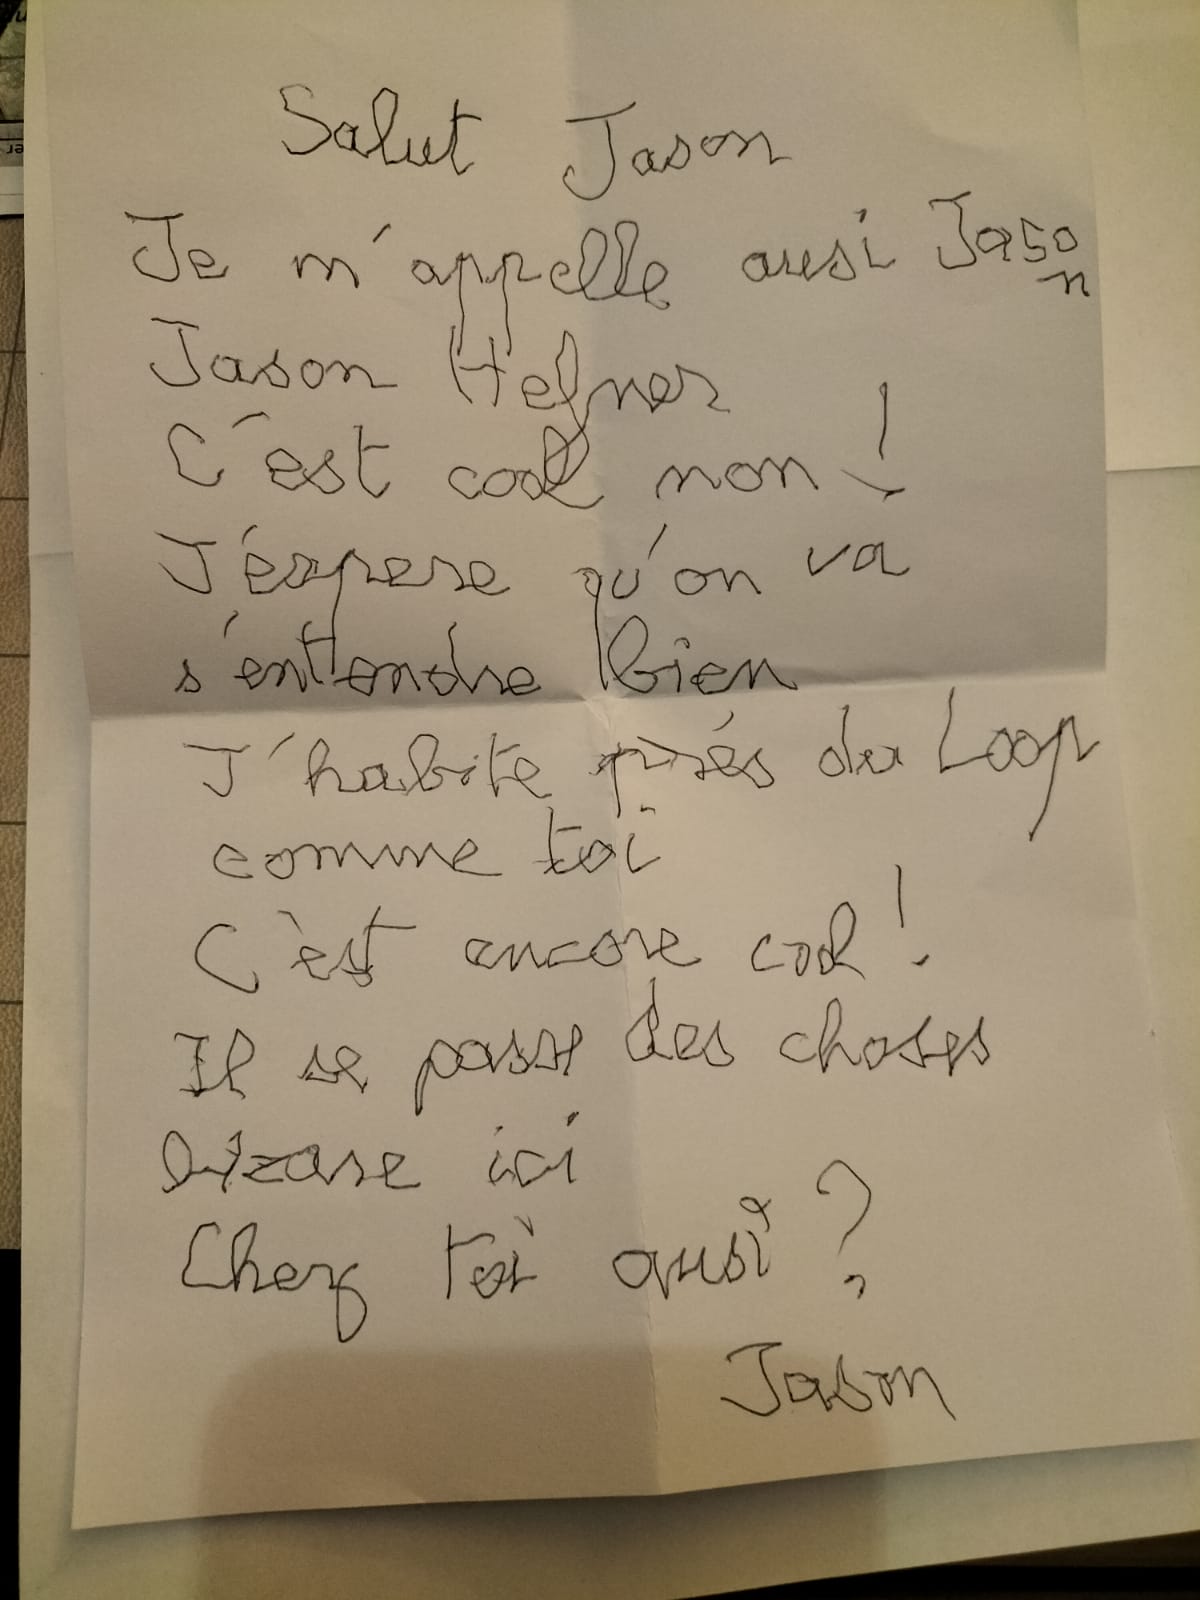 Salut Jason
Je m'appelle ausi Jason
Jason Hefner
C'est cool non !
J'éspere qu'on va
s'entendre bien
J'habite prés du Loop
comme toi
C'est encore cool !
Il se passe des choses
bizare ici
Chez toi ausi ?
Jason